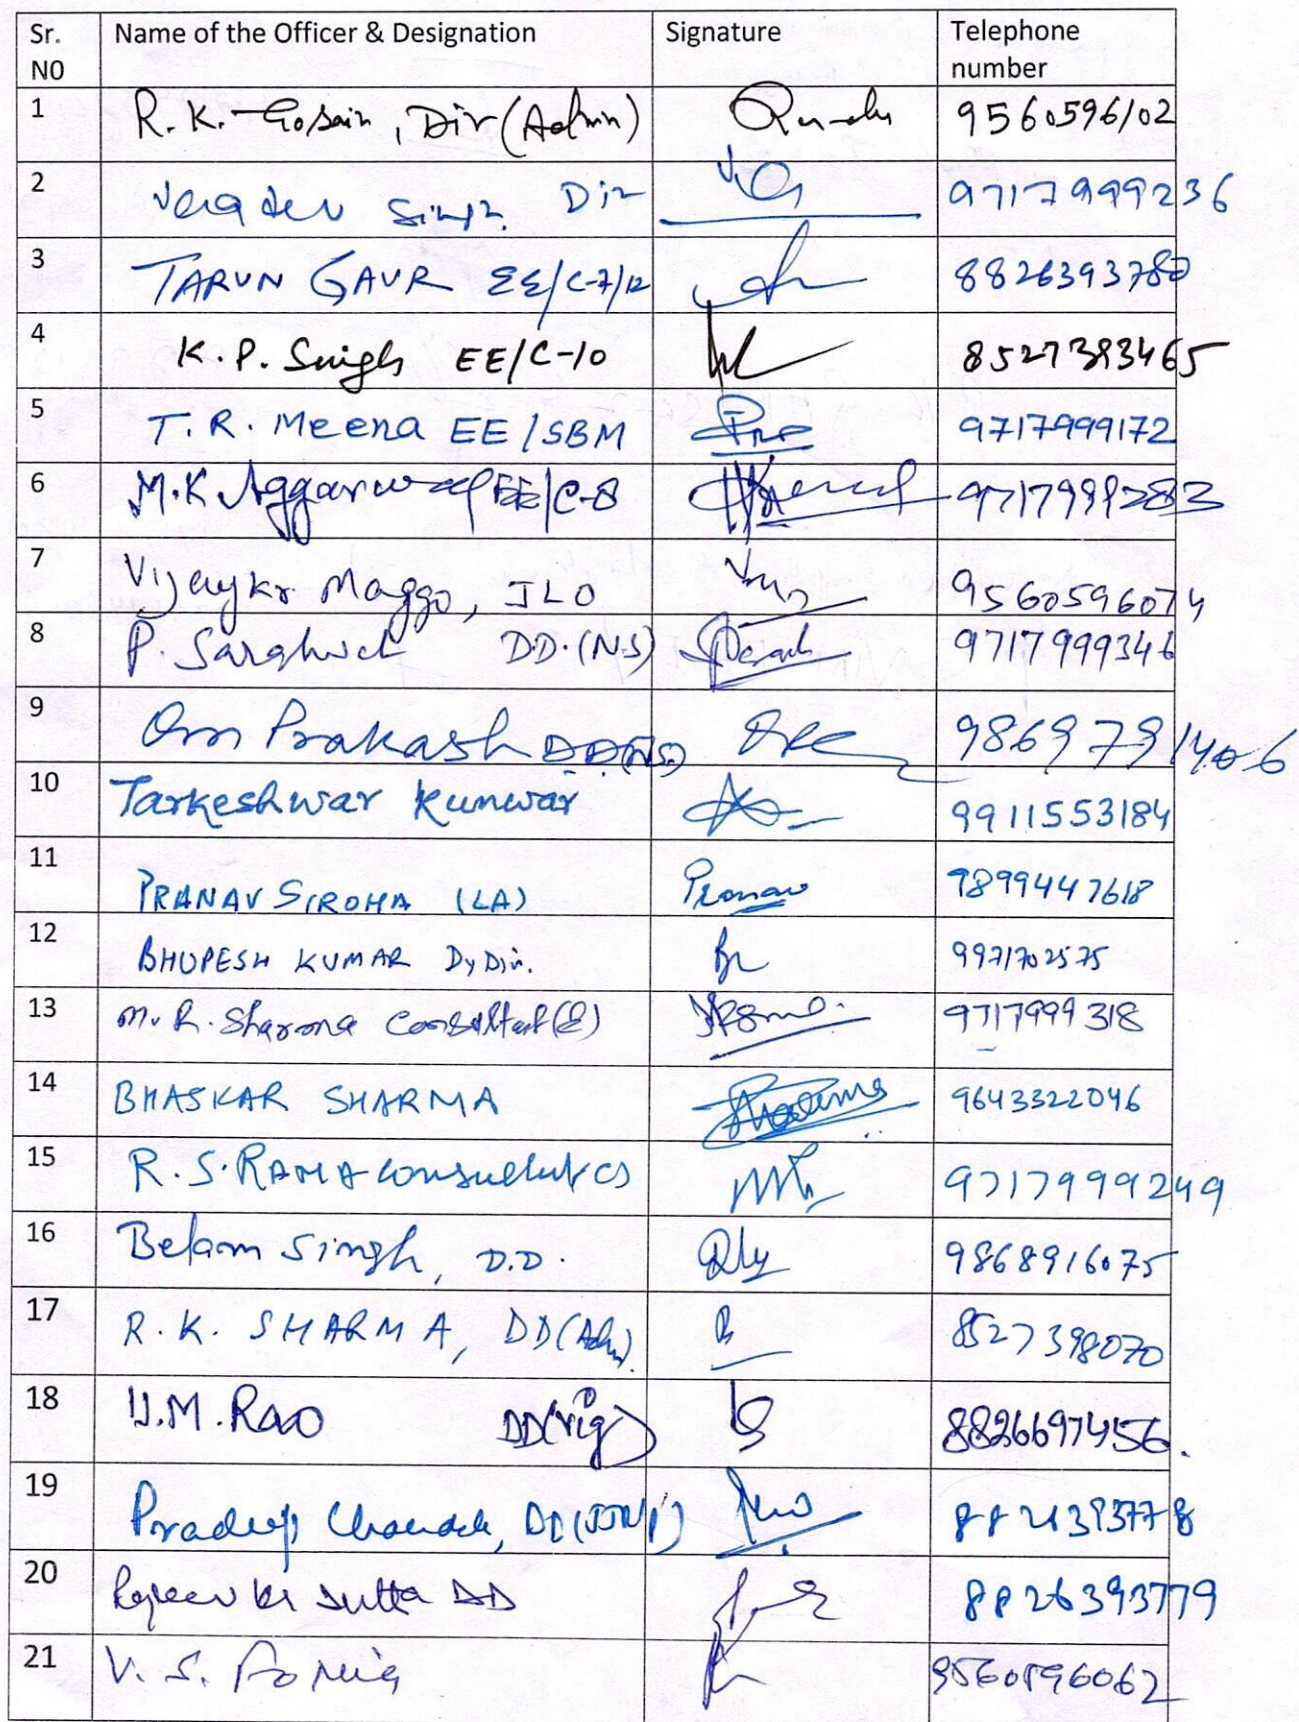 Sr. Name of the Officer & Designation Signature Telephone
NO number
1 R. K. Gosain, Dir (Admn) 9560596102
2 Singh Dir 9717999236
3 TARUN GAUR EE/C-7/12 8826393780
4 K.P. Singh EE/C-10 8527393465
5 T.R. Meena EE/SBM 9717999172
6 M.K Aggarwal EE/C-8 9717999283
7 Vijay Kr Maggo, JLO 9560596074
8 P. DD.(NS) 9717999346
9 Om Prakash DD(NS) 9869791406
10 Tarkeshwar Kunwar 9911553184
11 PRANAV SIROHA (LA) Pranav 9899447618
12 BHUPESH KUMAR Dy Dir. 9971702575
13 M.R. Sharma Consultant(E) 9717999318
14 BHASKAR SHARMA 9643322046
15 R.S. RANA Consultant CS 9717999249
16 Belam Singh, D.D. 9868916075
17 R.K. SHARMA, DD(Adm). 8527398070
18 U.M. Rao DD(vig) 8826697456.
19 Pradeep 8826393778
20 Rajeev Kr Dutta DD 8826393779
21 V. S. 9560596062